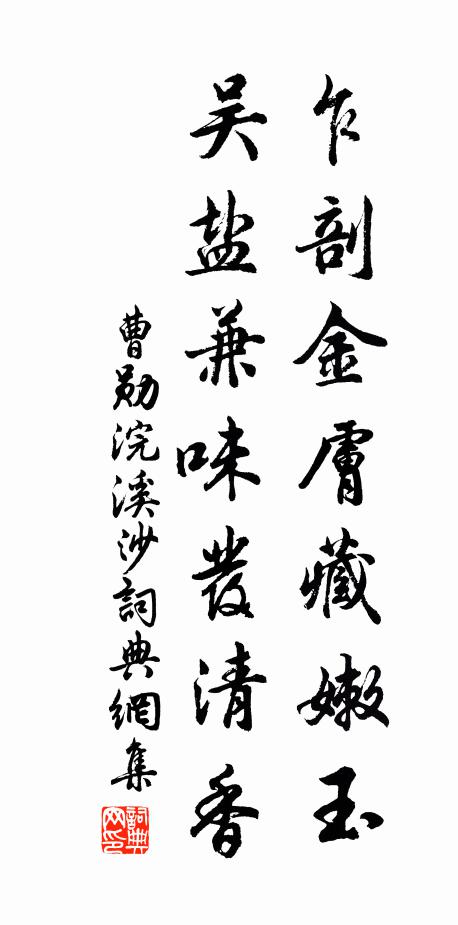 乍剖金膚藏嫩玉
吳盐兼味發清香
曹勛浣溪沙詞典網集
詞典网印